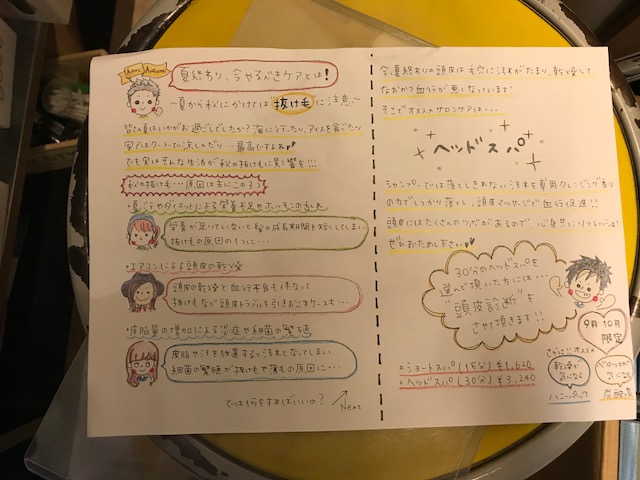 Anri Autumn
夏終わり、今やるべきケアとは!
〜夏から秋にかけては"抜け毛"に注意〜
皆さん夏はいかがお過ごしでしたか?海に行ったり、アイスを食べたり
家ではクーラーで涼んだり…最高ですよね
でも実はそんな生活が秋の抜け毛に影響を!!!
秋の抜け毛…原因は主にこの3つ
・夏バテやダイエットによる栄養不足やホルモンのみだれ
栄養が足りていないと髪の成長期間を短くしてしまい
抜け毛の原因の1つに…
・エアコンによる頭皮の乾燥
頭皮の乾燥と血行不良も伴なって
抜け毛など頭皮トラブルを引きおこすケースも…
・皮脂量の増加による炎症や細菌の繁殖
皮脂や汗を放置すると汚れとなってしまい
細菌の繁殖が抜け毛や薄毛の原因に…
では何をすればいいの?
Next
今、夏終わりの頭皮は毛穴に汚れがたまり、乾燥して
なおかつ血行が悪くなっています!
そこでオススメサロンケアは…
ヘッドスパ
シャンプーでは落としきれない汚れを専用クレンジング剤
の力でしっかり落とし、頭皮マッサージで血行促進!!
頭皮にはたくさんのツボがあるので、心身共にリフレッシュ!
ぜひおためし下さい
30分のヘッドスパを
選んで頂いた方には…
"頭皮診断"を
させて頂きます!!
9月10月
限定
・ショートスパ(15分)¥1,620
・ヘッドスパ(30分)¥3,240
さらに!!オススメ
乾燥が
気になる
ハニーパック
ベタつきが
気になる
炭酸泉